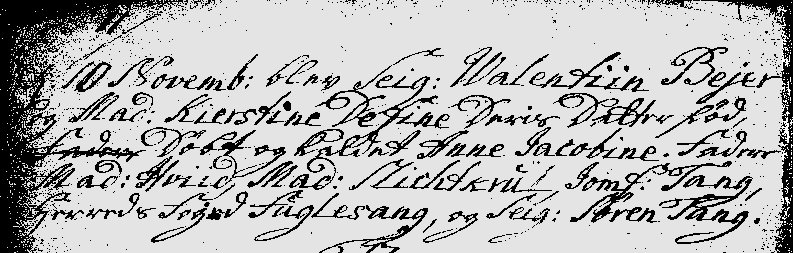 10 Novemb: blev Seig: Walentiin Bejer
og Mad: Kierstine Define Deris Datter fød,
Døbt og kaldet Anne Jacobine. Faddere
Mad: Hviid, Mad: Slichtkrul, Jomf: Tang,
Herreds Foged Fuglesang, og Seig: Søren Tang.